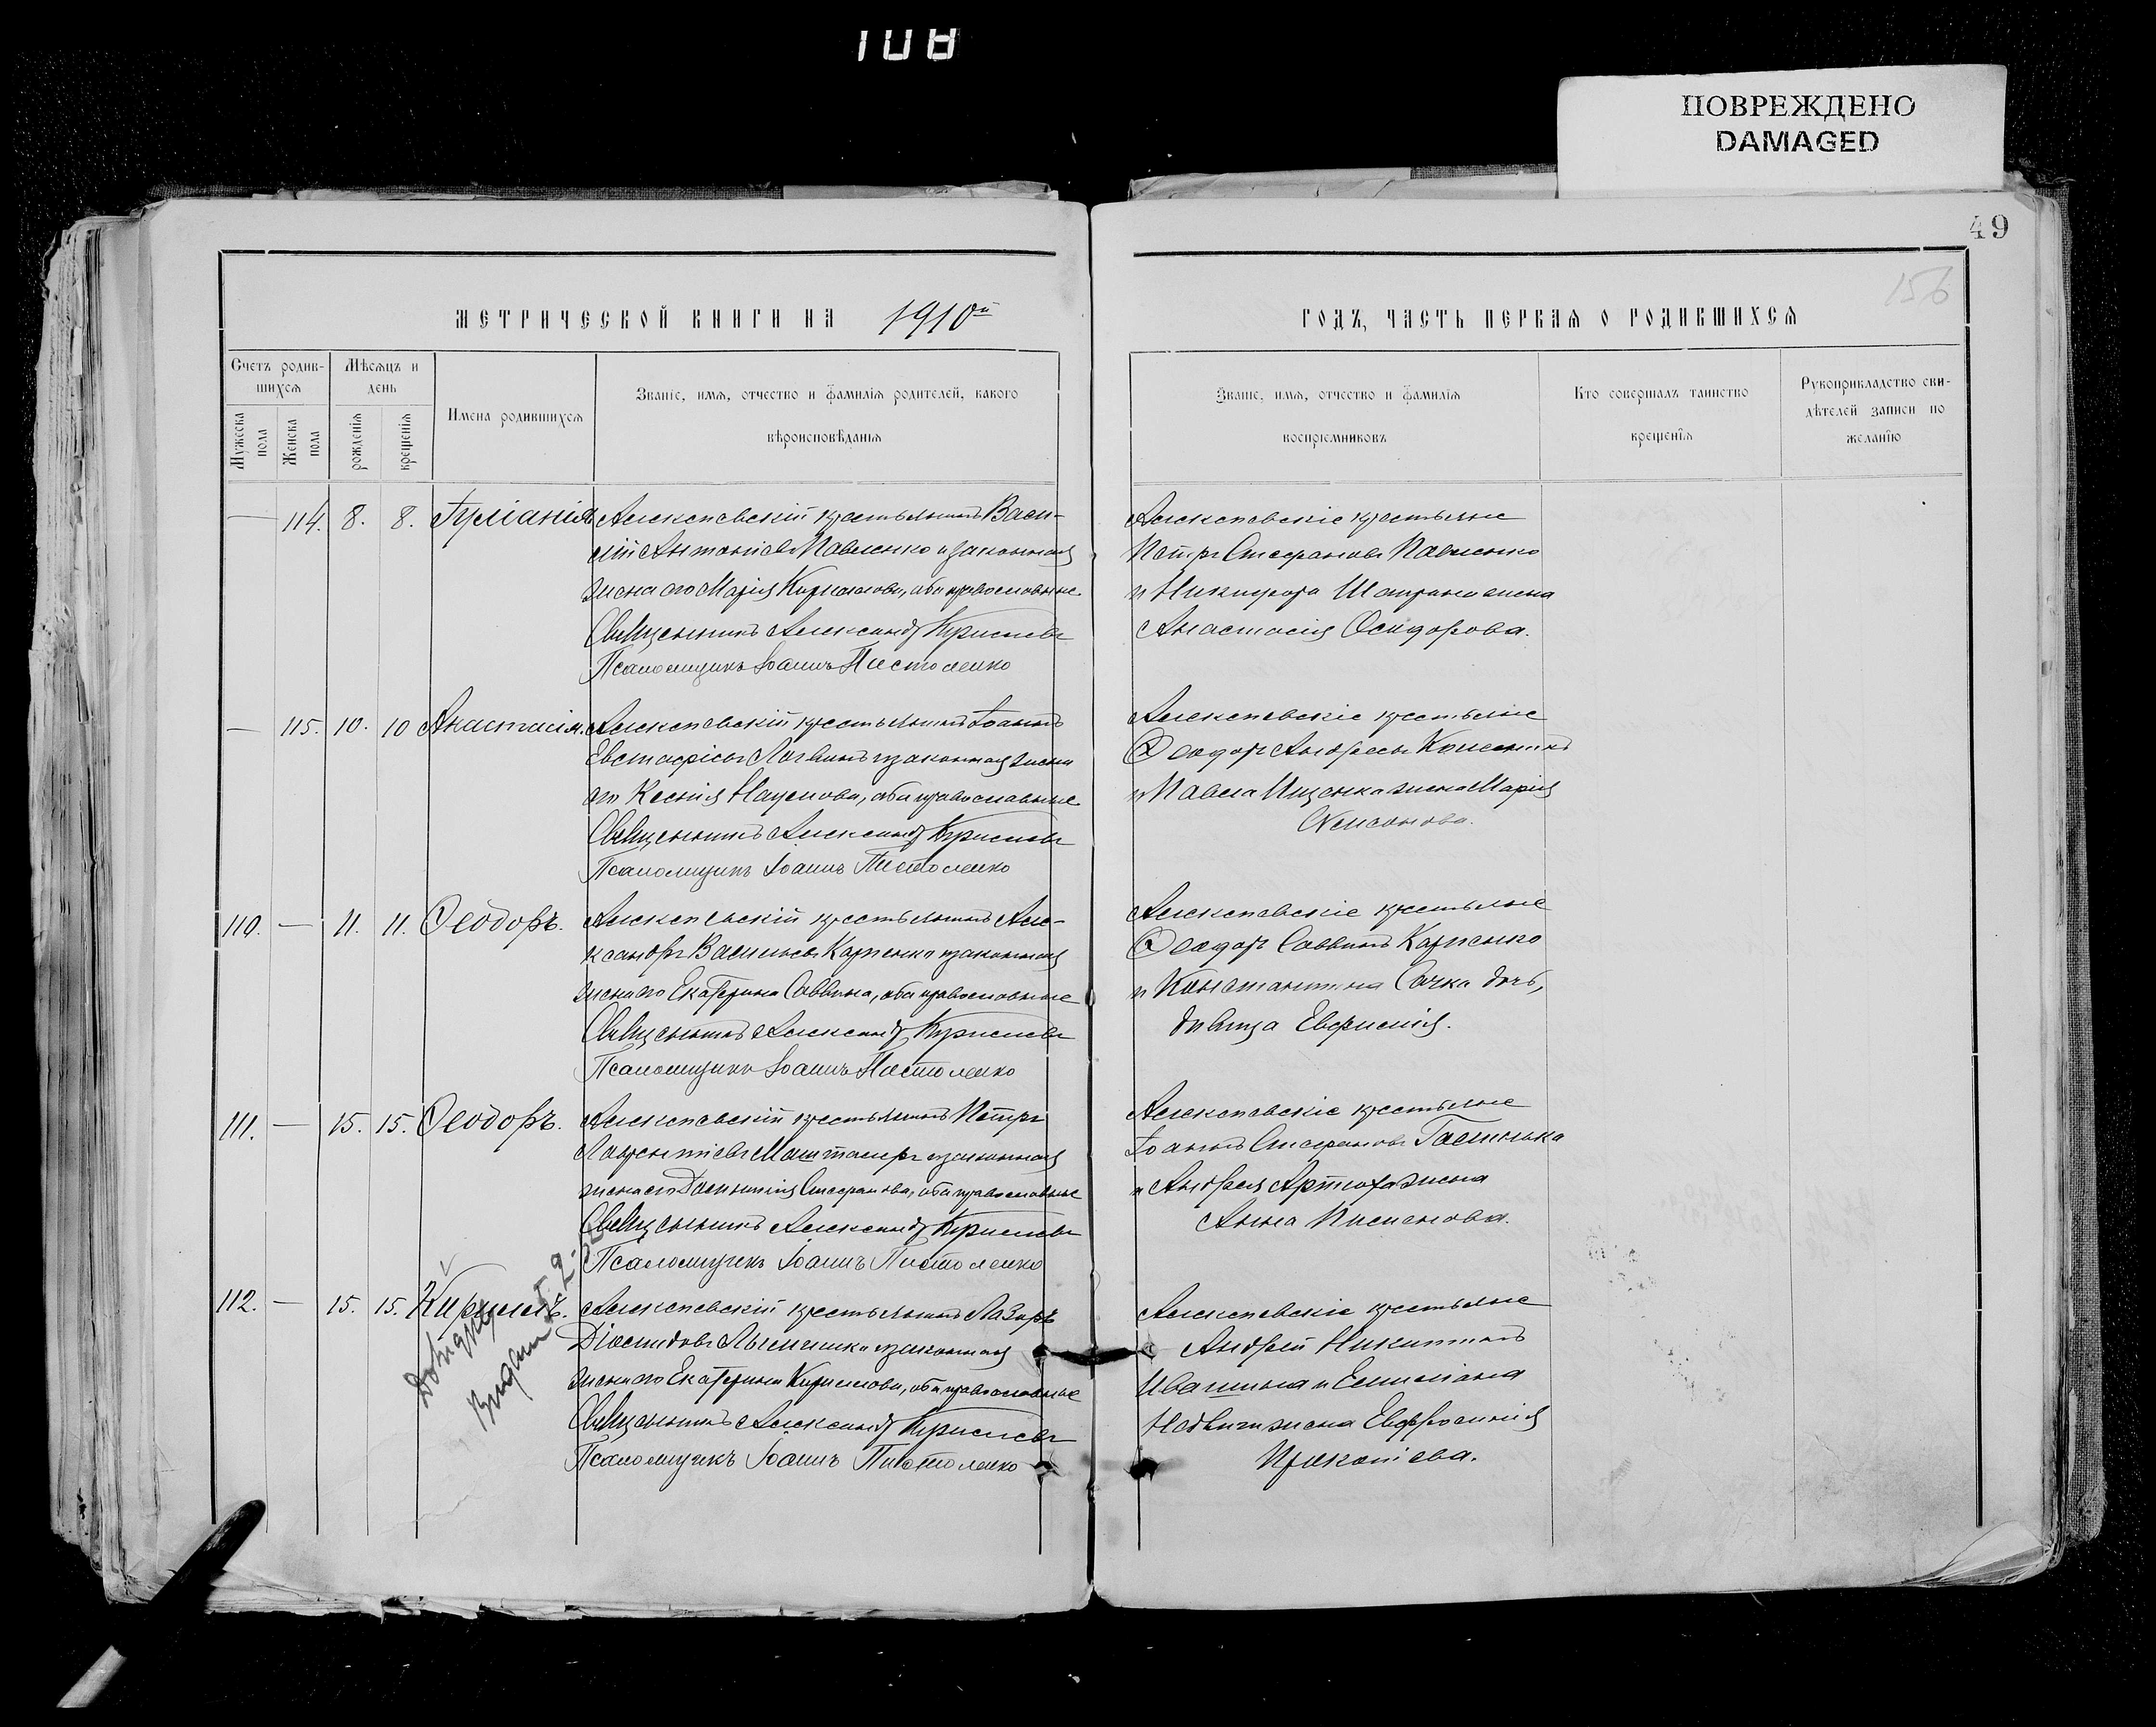 108
ПОВРЕЖДЕНО
DAMAGED
49
156
МЕТРИЧЕСКОЙ КНИГИ НА 1910й
ГОДЪ, ЧАСТЬ ПЕРВАЯ О РОДИВШИХСЯ
Счетъ родив-
шихся
Мужеска
пола
Женска
пола
Мѣсяцъ и
день
рожденія
крещенія
Имена родившихся
Званіе, имя, отчество и фамилія родителей, какого
вѣроисповѣданія
Званіе, имя, отчество и фамилія
воспріемниковъ
Кто совершалъ таинство
крещенія
Рукоприкладство сви-
дѣтелей записи по
желанію
— 114. 8. 8. Іуліанія
Алексѣевскій крестьянинъ Васи-
лій Антоніевъ Павленко и законная
жена его Марія Кириллова, оба православные
Священникъ Александръ
Псаломщикъ Іоаннъ Пистоленко
Алексѣевскіе крестьяне
Петръ Стефановъ Павленко
и Никифора жена
Анастасія Осидорова.
— 115. 10. 10 Анастасія.
Алексѣевскій крестьянинъ Іоаннъ
Евстафіевъ Логвинъ и законная жена
его Ксенія Наумова, оба православные
Священникъ Александръ
Псаломщикъ Іоаннъ Пистоленко
Алексѣевскіе крестьяне
Ѳеодоръ Андреевъ
и Павла Ищенка жена Марія
110. — 11. 11. Ѳеодоръ.
Алексѣевскій крестьянинъ Але-
ксандръ Васильевъ Карпенко и законная
жена его Екатерина Саввина, оба православные
Священникъ Александръ
Псаломщикъ Іоаннъ Пистоленко
Алексѣевскіе крестьяне
Ѳеодоръ Саввинъ Карпенко
и Константина Сочка дочь,
дѣвица Евфимія.
111. — 15. 15. Ѳеодоръ.
Алексѣевскій крестьянинъ Петръ
Лаврентіевъ Машталеръ и законная
жена его Стефанова, оба православные
Священникъ Александръ
Псаломщикъ Іоаннъ Пистоленко
Алексѣевскіе крестьяне
Іоаннъ Стефановъ
и Андрея Артюха жена
Анна
112. — 15. 15. Кириллъ.
Алексѣевскій крестьянинъ Лазарь
Діомидовъ и законная
жена его Екатерина Кириллова, оба православные
Священникъ Александръ
Псаломщикъ Іоаннъ Пистоленко
Алексѣевскіе крестьяне
Андрей Никитинъ
Ивашина и Емиліана
жена Евфросинія
Прокопіева.